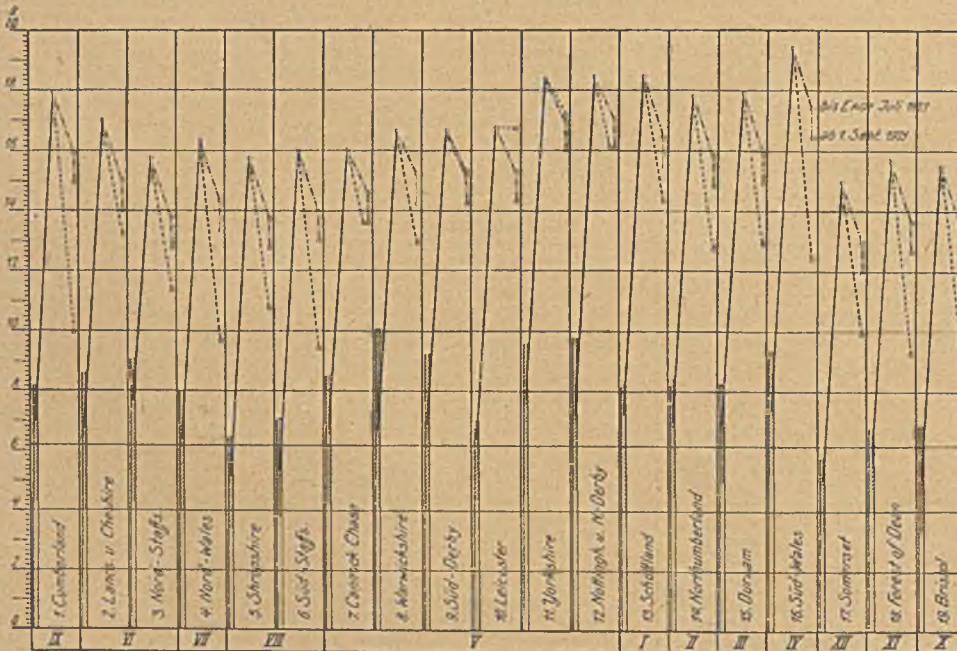 bis Ende Juli 1921
ab 1. Sept. 1921
1. Cumberland
2. Lancs. u. Cheshire
3. Nord-Staffs
4. Nord-Wales
5. Shropshire
6. Süd-Staffs
7. Cannock Chase
8. Warwickshire
9. Süd-Derby
10. Leicester
11. Yorkshire
12. Nottingh. u. N-Derby
13. Schottland
14. Northumberland
15. Durham
16. Süd-Wales
17. Somerset
18. Forest of Dean
19. Bristol
IX VI VII VIII V I II III IV XII XI X